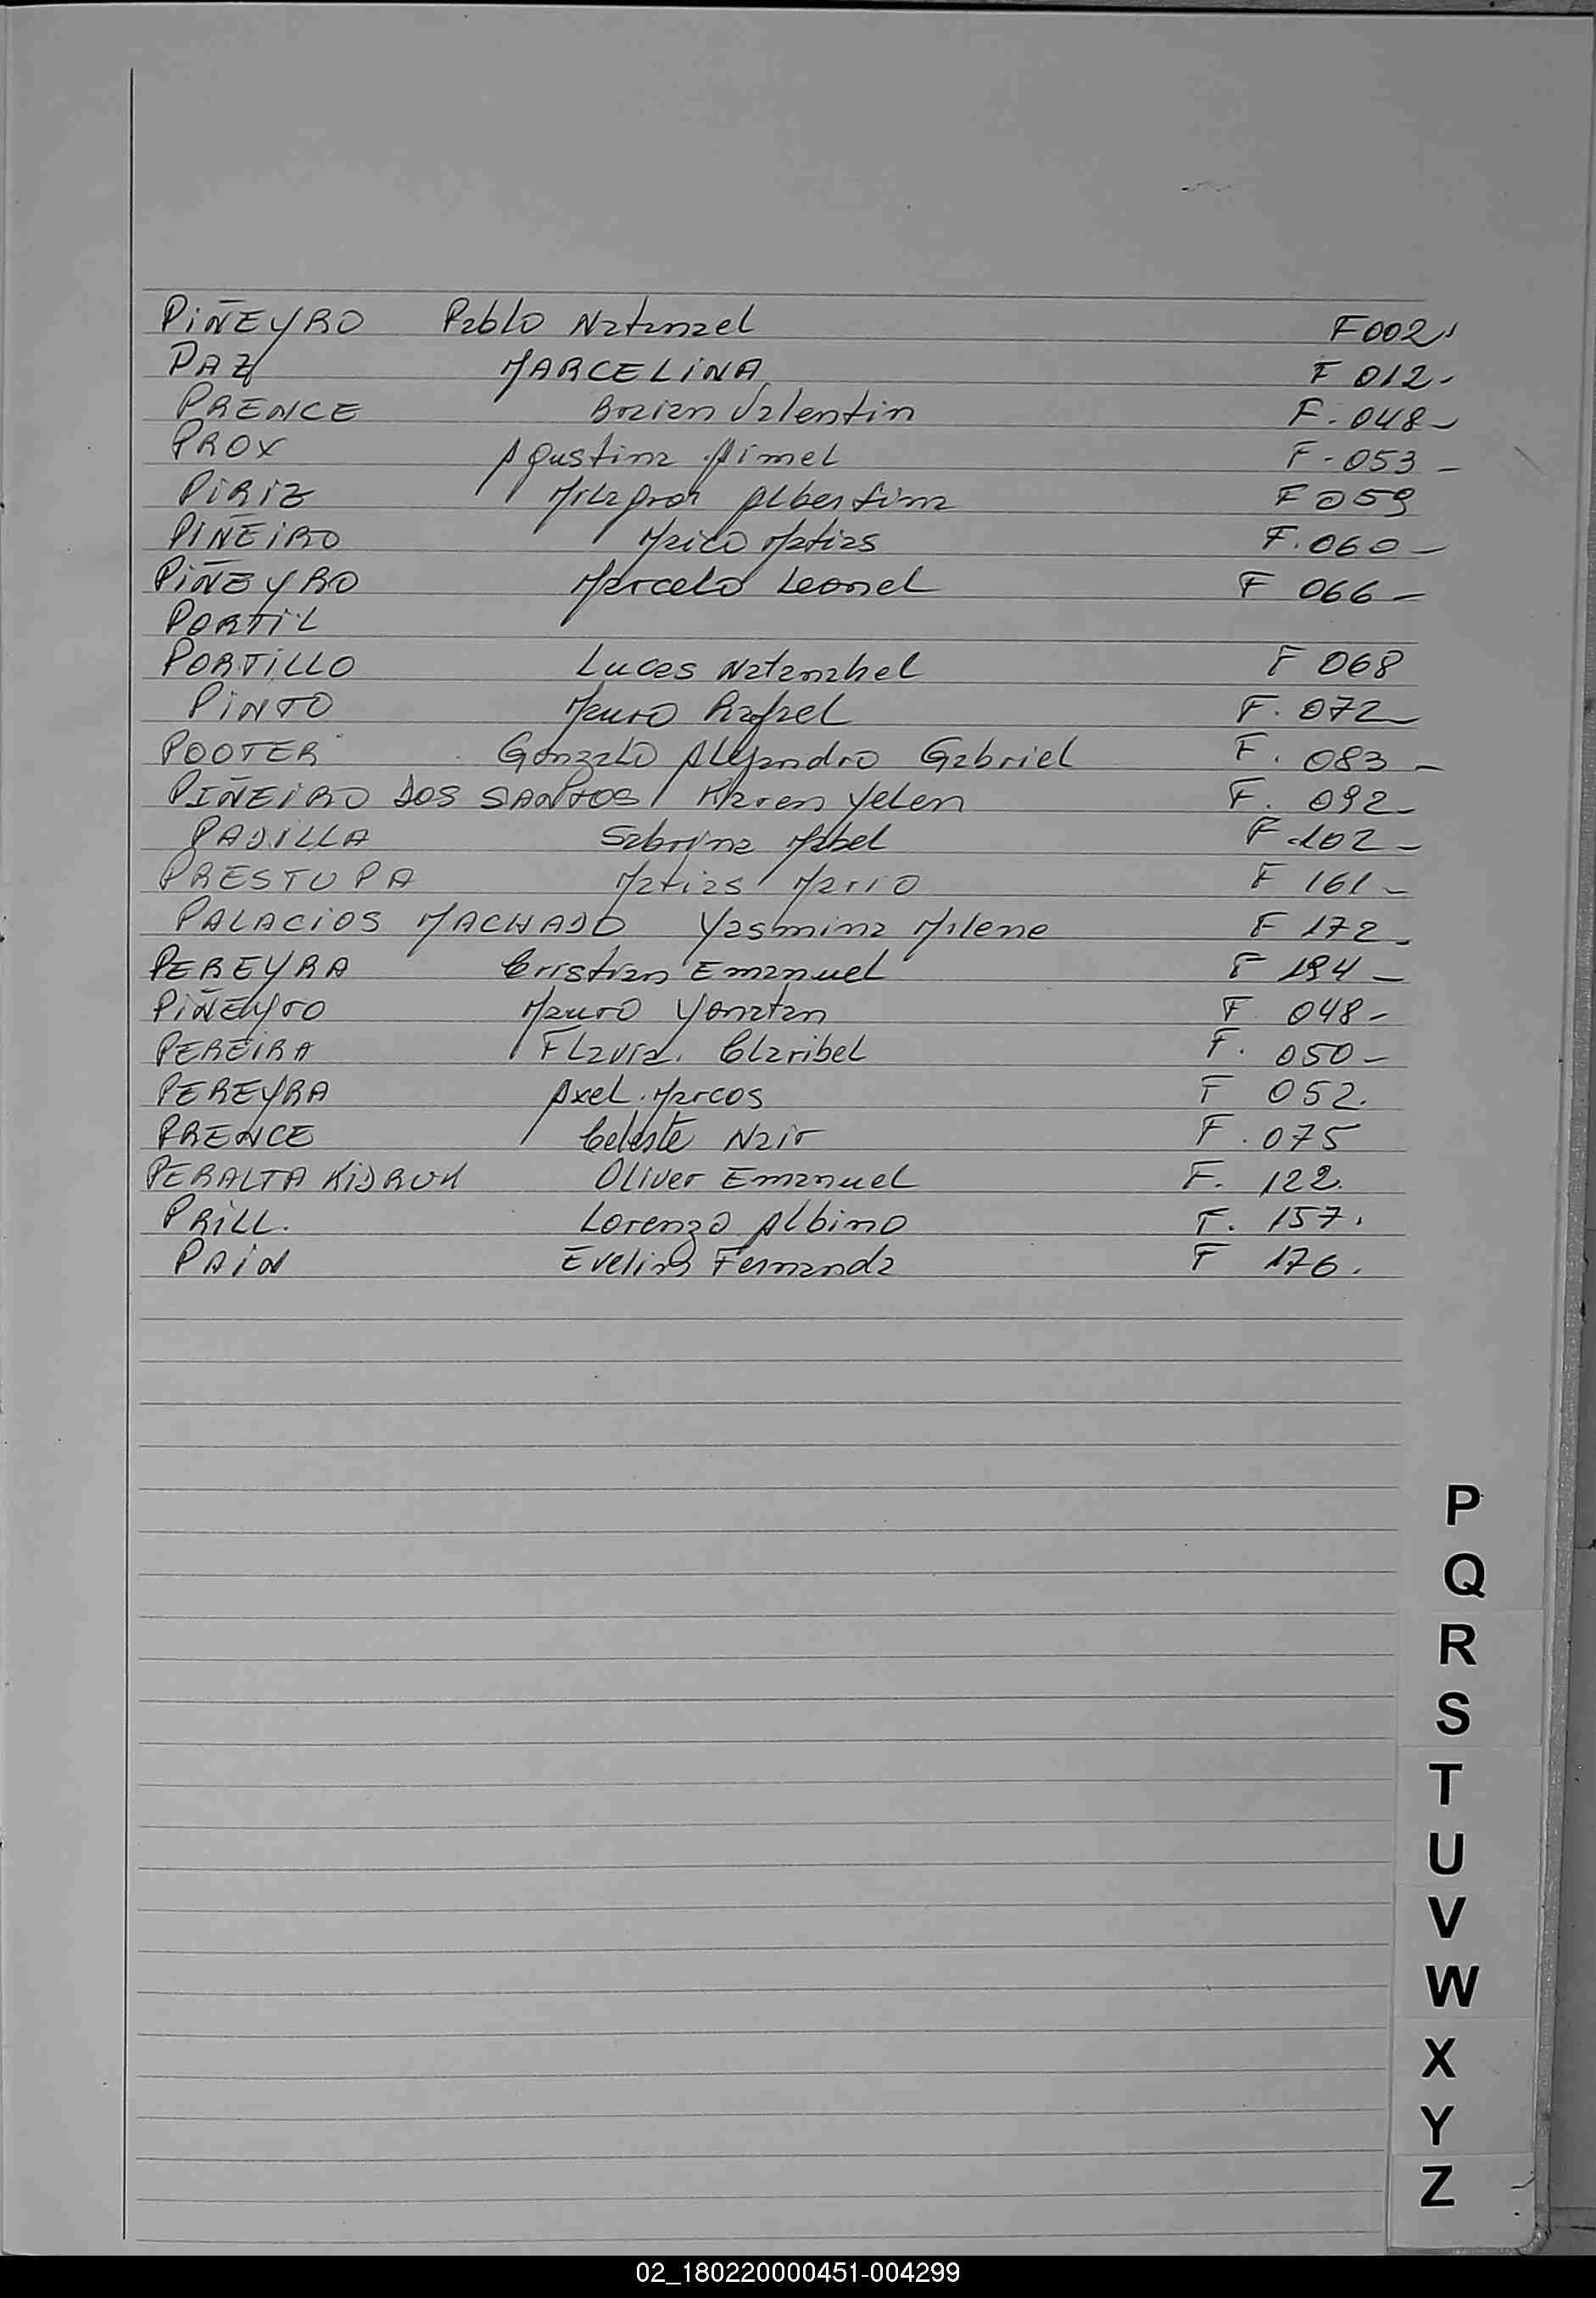 PIÑEYRO Pablo Natanael F002
PAZ MARCELINA F 012-
PRENCE Braian Valentin F-048-
PROX Agustina Aimel F-053-
PIRIZ Milagros Albertina F 059
PIÑEIRO Maico Matias F.060-
PIÑEYRO Marcelo Leonel F 066-
PORTIL
PORTILLO Lucas Natanahel F 068
PINTO Mauro Rafael F. 072-
POOTER Gonzalo Alejandro Gabriel F. 083-
PIÑEIRO DOS SANTOS Karen Yelen F. 092-
PADILLA Sabrina Mabel F 102-
PRESTUPA Matias Mario F 161-
PALACIOS MACHADO Yasmina Milene F 172-
PEREYRA Cristian Emanuel F 194-
PIÑEyro Mauro Yonatan F 048-
PEREIRA Flavia. Claribel F. 050-
PEREYRA Axel Marcos F 052.
PRENCE Celeste Nair F. 075
PERALTA KIDRUK Oliver Emanuel F. 122.
PRILL. Lorenzo Albino F. 157.
PAIN Evelina Fernanda F 176.
P
Q
R
S
T
U
V
W
X
Y
Z
02_180220000451-004299